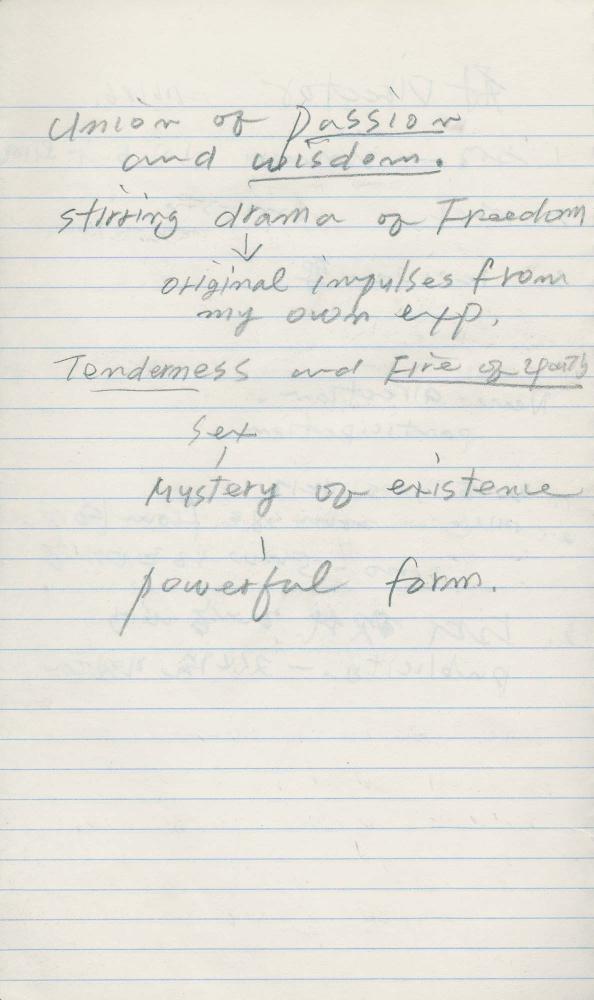 Union of Passion
and wisdom.
stirring drama of Freedom
original impulses from
my own exp.
Tenderness and Fire of
Sex
Mystery of existence
powerful form.